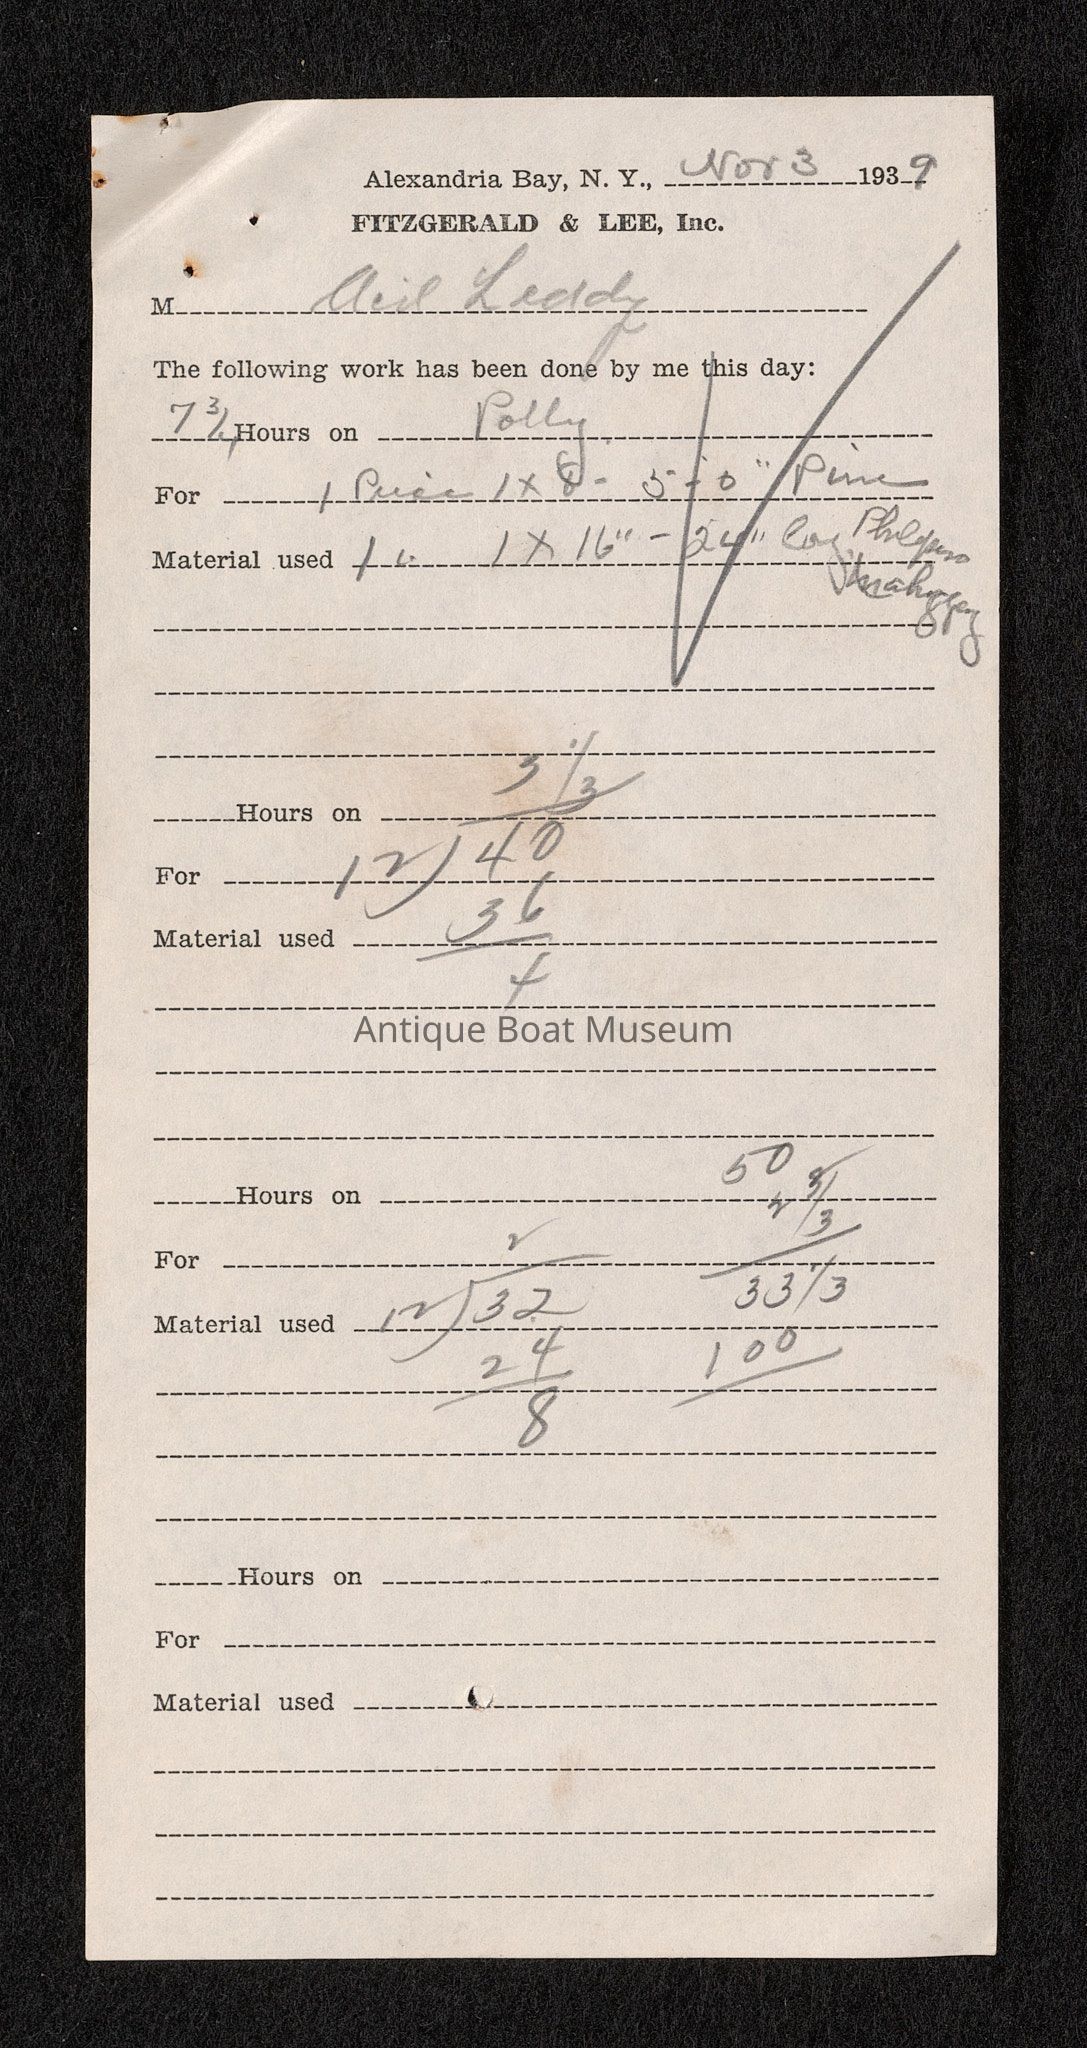 Alexandria Bay, N. Y., Nov 3 1939
FITZGERALD & LEE, Inc.
M Leddy
The following work has been done by me this day:
7 3/4 Hours on Polly
For 1 Piece 1 x 8 - 5-0" Pine
Material used 1 " 1 X 16" - 24" long
Mahogany
3 1/3
Hours on
12)40
For
36
Material used
4
Antique Boat Museum
50
Hours on
2 2/3
2
For
33 1/3
12)32
Material used
24
100
8
Hours on
For
Material used